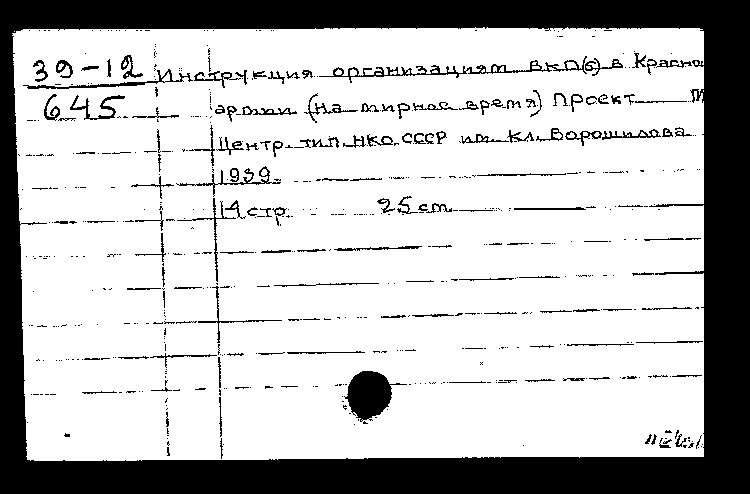 39-12 Инструкция организациям ВКП(б) в Красно
645 армии (на мирное время) Проект
Центр. тип. НКО СССР им. Кл. Ворошилова
1939.
14 стр. 25 cm